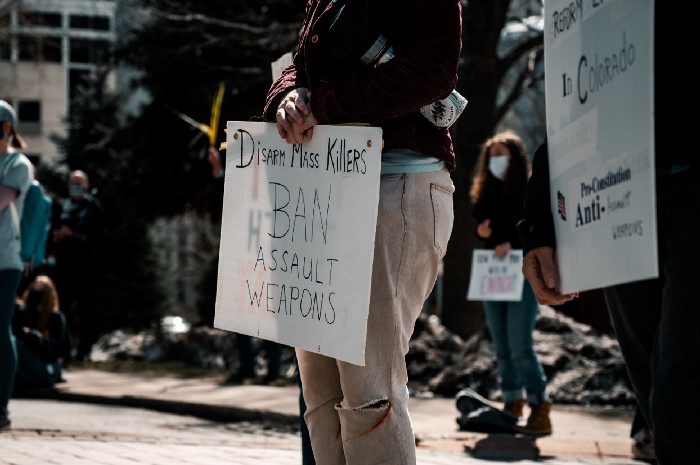 Disarm Mass Killers
BAN
ASSAULT
WEAPONS
REFORM
In Colorado
Pro-Constitution
Anti-Assault
WEAPONS
ENOUGH